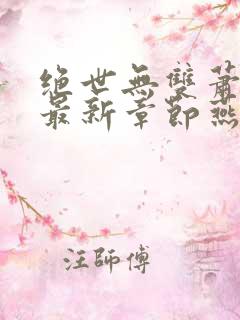 绝世無雙蕭
最新章節燕
汪師傅